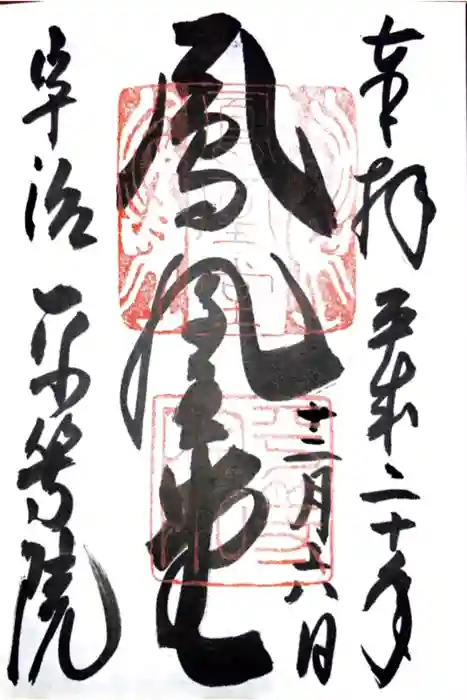 奉拝
平成二十年
十二月六日
鳳凰堂
宇治 平等院